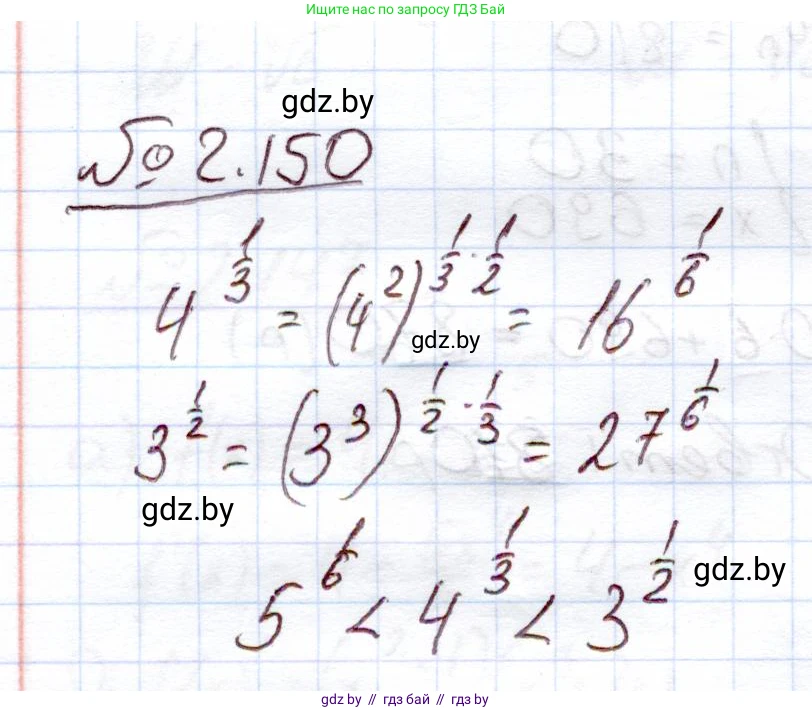 Ищите нас по запросу ГДЗ Бай
gdz.by
№ 2.150
4^{1/3} = (4^2)^{1/3 · 1/2} = 16^{1/6}
gdz.by
3^{1/2} = (3^3)^{1/2 · 1/3} = 27^{1/6}
gdz.by
gdz.by
5^{1/6} < 4^{1/3} < 3^{1/2}
gdz.by // гдз бай // gdz.by